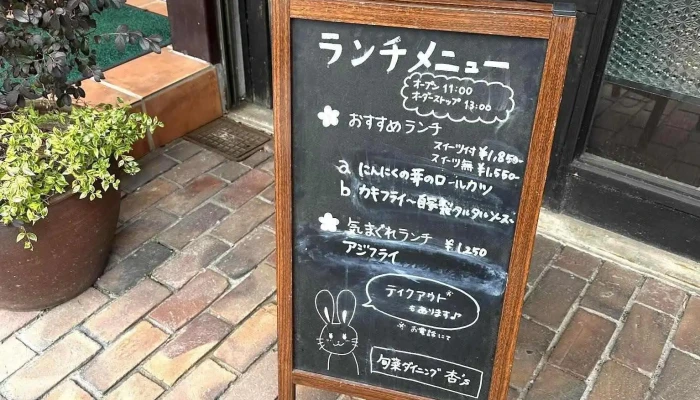 ランチメニュー
オープン 11:00
オーダーストップ 13:00
おすすめランチ
スイーツ付 ¥1,850-
スイーツ無 ¥1,550-
a にんにくの芽のロールカツ
b カキフライ〜自家製タルタルソース〜
気まぐれランチ ¥1,250
アジフライ
テイクアウト
もあります♪
※お電話にて
旬菜ダイニング 杏's